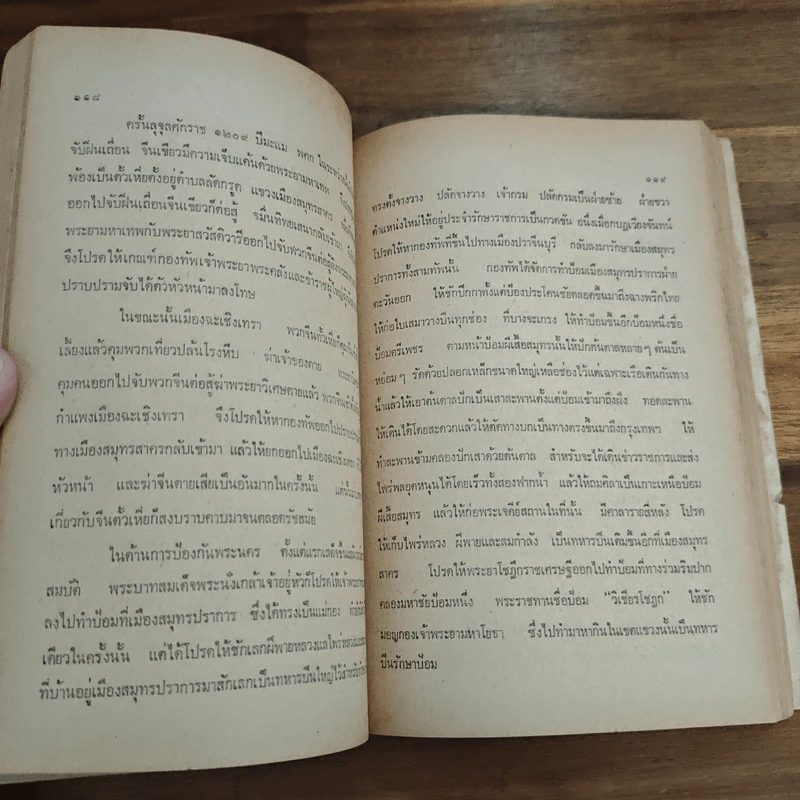 ๑๑๘
ครั้นลุจุลศักราช ๑๒๐๙ ปีมะแม พศก ในระหว่าง
จับฝิ่นเถื่อน จีนเขียวมีความเจ็บแค้นด้วยพระยามหาเทพ
พ้องเป็นตั้วเหี่ยตั้งอยู่ตำบลลัดกรูด แขวงเมืองสมุทรสาคร
ออกไปจับฝิ่นเถื่อนจีนเขียวก็ต่อสู้ จมื่นทิพยเสนากลับเข้ามา
พระยามหาเทพกับพระยาสวัสดิวารีออกไปจับพวกจีนต่อสู้
จึงโปรดให้เกณฑ์กองทัพเจ้าพระยาพระคลังและข้าราชผู้ใหญ่
ปราบปรามจับได้ตัวหัวหน้ามาลงโทษ
ในขณะนั้นเมืองฉะเชิงเทรา พวกจีนตั้วเหี่ย
เลี้ยงแล้วคุมพวกเที่ยวปล้นโรงหีบ ฆ่าเจ้าของตาย
คุมคนออกไปจับพวกจีนต่อสู้ฆ่าพระยาวิเศษตายแล้ว พวกจีน
กำแพงเมืองฉะเชิงเทรา จึงโปรดให้หากองทัพออกไป
ทางเมืองสมุทรสาครกลับเข้ามา แล้วให้ยกออกไปเมืองฉะเชิงเทรา
หัวหน้า และฆ่าจีนตายเสียเป็นอันมากในครั้งนั้น
เกี่ยวกับจีนตั้วเหี่ยก็สงบราบคาบมาจนตลอดรัชสมัย
ในด้านการป้องกันพระนคร ตั้งแต่แรกเสด็จ
สมบัติ พระบาทสมเด็จพระนั่งเกล้าเจ้าอยู่หัวก็โปรดให้
ลงไปทำป้อมที่เมืองสมุทรปราการ ซึ่งได้ทรงเป็นแม่กอง
เดียวในครั้งนั้น แต่ได้โปรดให้ชักเลกฝีพายหลวงแลไพร่หลวง
ที่บ้านอยู่เมืองสมุทรปราการมาสักเลกเป็นทหารปืนใหญ่ไว้สำหรับ
๑๑๙
ทรงตั้งจางวาง ปลัดจางวาง เจ้ากรม ปลัดกรมเป็นฝ่ายซ้าย ฝ่ายขวา
ตำแหน่งใหม่ให้อยู่ประจำรักษาราชการเป็นกวดขัน อนึ่งเมื่อกบฏเวียงจันทน์
โปรดให้หากองทัพที่ขึ้นไปทางเมืองปราจีนบุรี กลับลงมารักษาเมืองสมุทร
ปราการทั้งสามทัพนั้น กองทัพได้จัดการทำป้อมเมืองสมุทรปราการฝ่าย
ตะวันออก ให้ชักปีกกาตั้งแต่ป้องประโคนชัยตลอดขึ้นมาถึงฉางพริกไทย
ให้ก่อใบเสมาวางปืนทุกช่อง ที่บางจะเกรง ให้ทำป้อมขึ้นอีกป้อมหนึ่งชื่อ
ป้อมตรีเพชร ตามหน้าป้อมผีเสื้อสมุทรนั้นให้ปักต้นตาลหลายๆ ต้นเป็น
หย่อมๆ รัดด้วยปลอกเหล็กขนาดใหญ่เหลือช่องไว้แต่เฉพาะเรือเดินกันทาง
น้ำแล้วให้เอาต้นตาลปักเป็นเสาสะพานตั้งแต่ป้อมเข้ามาถึงฝั่ง ทอดสะพาน
ให้เดินได้โดยสะดวกแล้วให้ตัดทางบกเป็นทางตรงขึ้นมาถึงกรุงเทพฯ ให้
ทำสะพานข้ามคลองปักเสาด้วยต้นตาล สำหรับจะได้เดินข่าวราชการและส่ง
ไพร่พลอุดหนุนได้โดยเร็วทั้งสองฟากน้ำ แล้วให้ถมศิลาเป็นเกาะเหนือป้อม
ผีเสื้อสมุทร แล้วให้ก่อพระเจดีย์สถานในที่นั้น มีศาลารายสี่หลัง โปรด
ให้เก็บไพร่หลวง ฝีพายและสมกำลัง เป็นทหารปืนเติมขึ้นอีกที่เมืองสมุทร
สาคร โปรดให้พระยาโชฎึกราชเศรษฐีออกไปทำป้อมที่ทางร่วมริมปาก
คลองมหาชัยป้อมหนึ่ง พระราชทานชื่อป้อม "วิเชียรโชฎก" ให้ชัก
มอญกองเจ้าพระยามหาโยธา ซึ่งไปทำมาหากินในเขตแขวงนั้นเป็นทหาร
ปืนรักษาป้อม